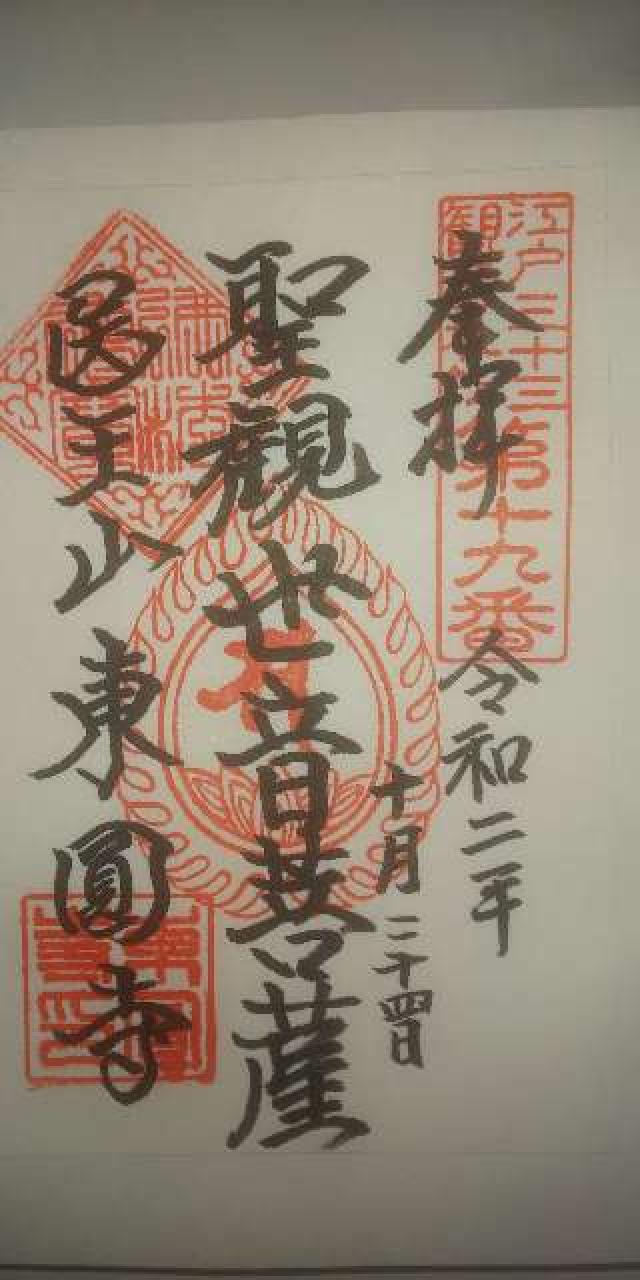 江戸三十三
観
第十九番
奉拝
令和二年
十月二十四日
聖観世音菩薩
醫王山東圓寺